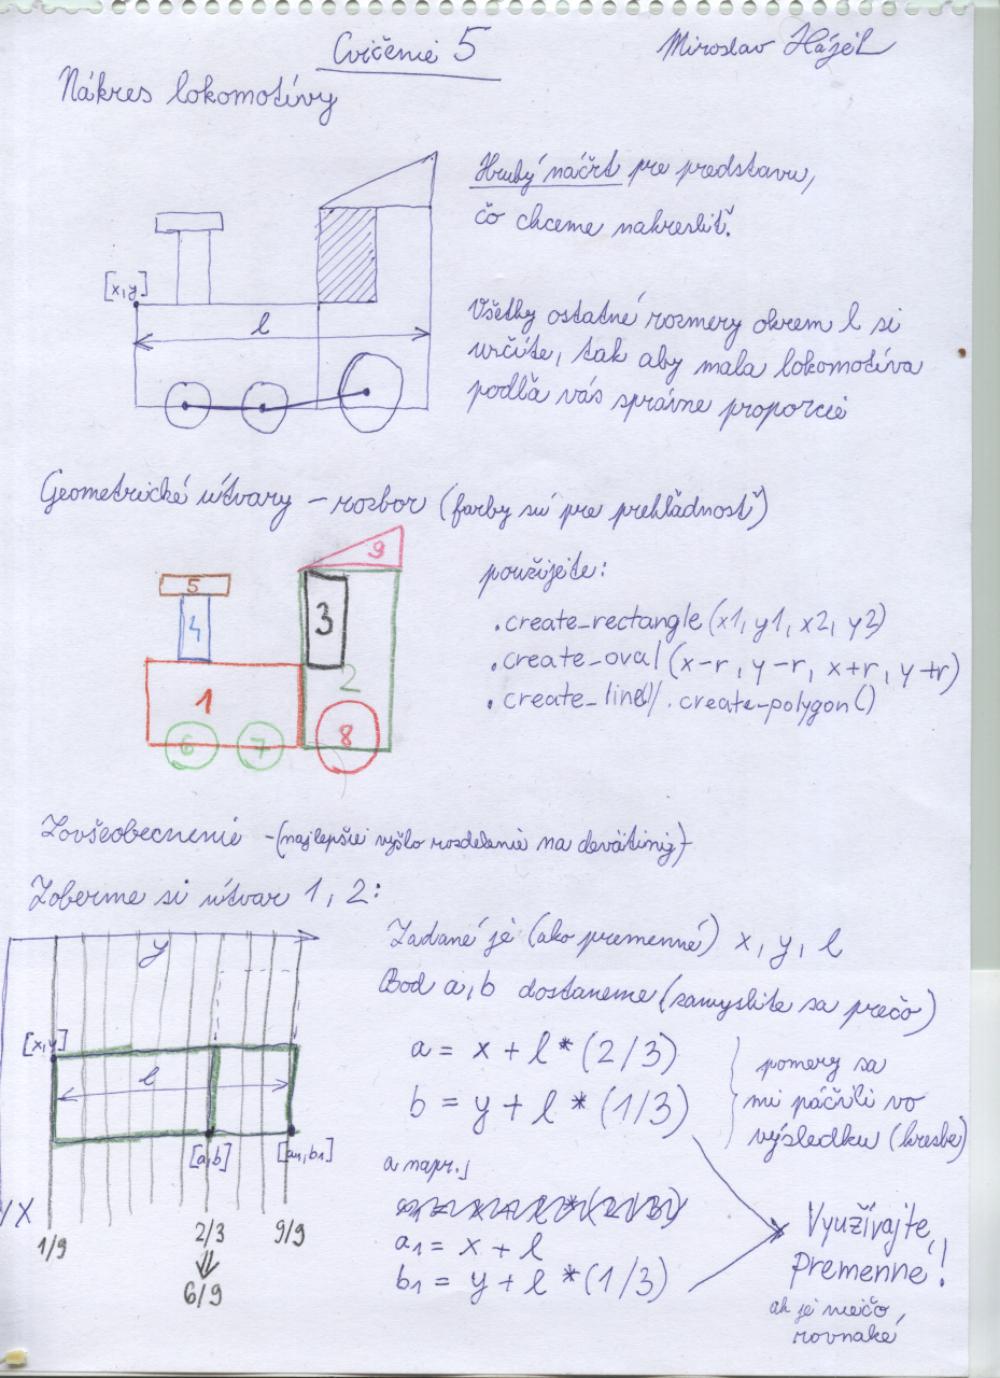 Cvičenie 5
Miroslav Hájek
Nákres lokomotívy
Hrubý náčrt pre predstavu,
čo chceme nakresliť.
[x,y]
l
Všetky ostatné rozmery okrem l si
určite, tak aby mala lokomotíva
podľa vás správne proporcie
Geometrické útvary – rozbor (farby sú pre prehľadnosť)
9
5
4
3
1
2
6
7
8
použijete:
.create_rectangle(x1, y1, x2, y2)
.create_oval(x-r, y-r, x+r, y+r)
.create_line()/.create_polygon()
Zovšeobecnenie -(najlepšie vyšlo rozdelenie na devätiny)-
Zoberme si útvar 1, 2:
y
[x,y]
l
[a,b]
[a1,b1]
X
1/9
2/3
9/9
6/9
Zadané je (ako premenné) x, y, l
Bod a,b dostaneme (zamyslite sa prečo)
a = x + l * (2/3)
b = y + l * (1/3)
pomery sa
mi páčili vo
výsledku (kresbe)
a napr.
a1 = x + l
b1 = y + l * (1/3)
Využívajte
premenné!
ak je niečo
rovnaké